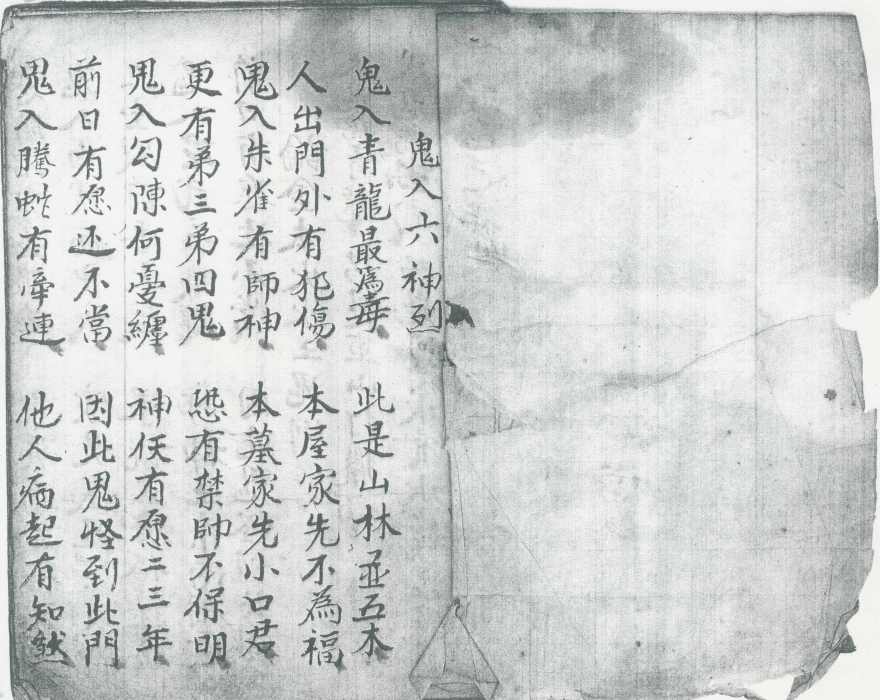 鬼入六神列
鬼入青龍最爲毒 此是山林並五木
人出門外有犯傷 本屋家先不為福
鬼入朱雀有師神 本墓家先小口君
更有弟三弟四鬼 恐有禁師不保明
鬼入勾陳何憂纏 神伕有愿二三年
前日有愿还不當 因此鬼怪到此門
鬼入騰蛇有牽連 他人病起有知然